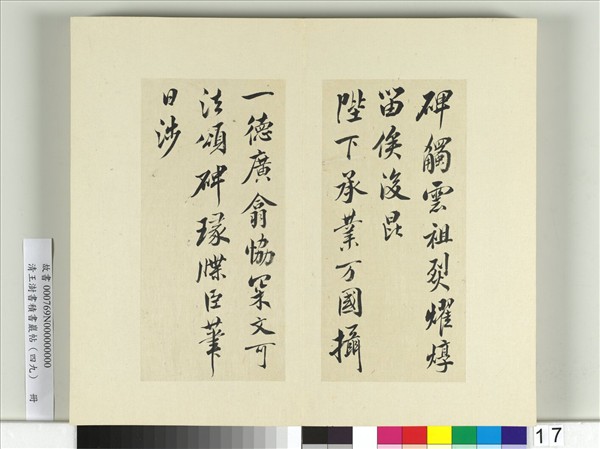 碑觸雲祖烈耀焞
留侯後昆
陛下承業万國攝
一德廣翕協架文可
法頌碑瑑牒臣筆
日涉
故書 000769N000000000
清王澍書積書巖帖（四九） 冊
17